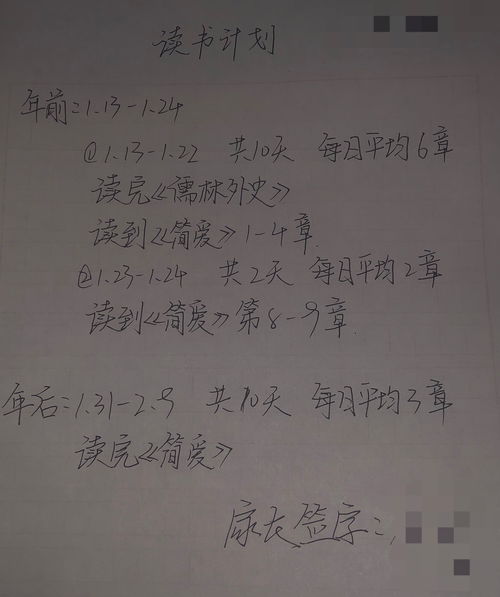 读书计划
年前:1.13-1.24
@1.13-1.22 共10天 每日平均6章
读完《儒林外史》
读到《简爱》1-4章
@1.23-1.24 共2天 每日平均2章
读到《简爱》第8-9章
年后:1.31-2.9 共10天 每日平均3章
读完《简爱》
家长签字: